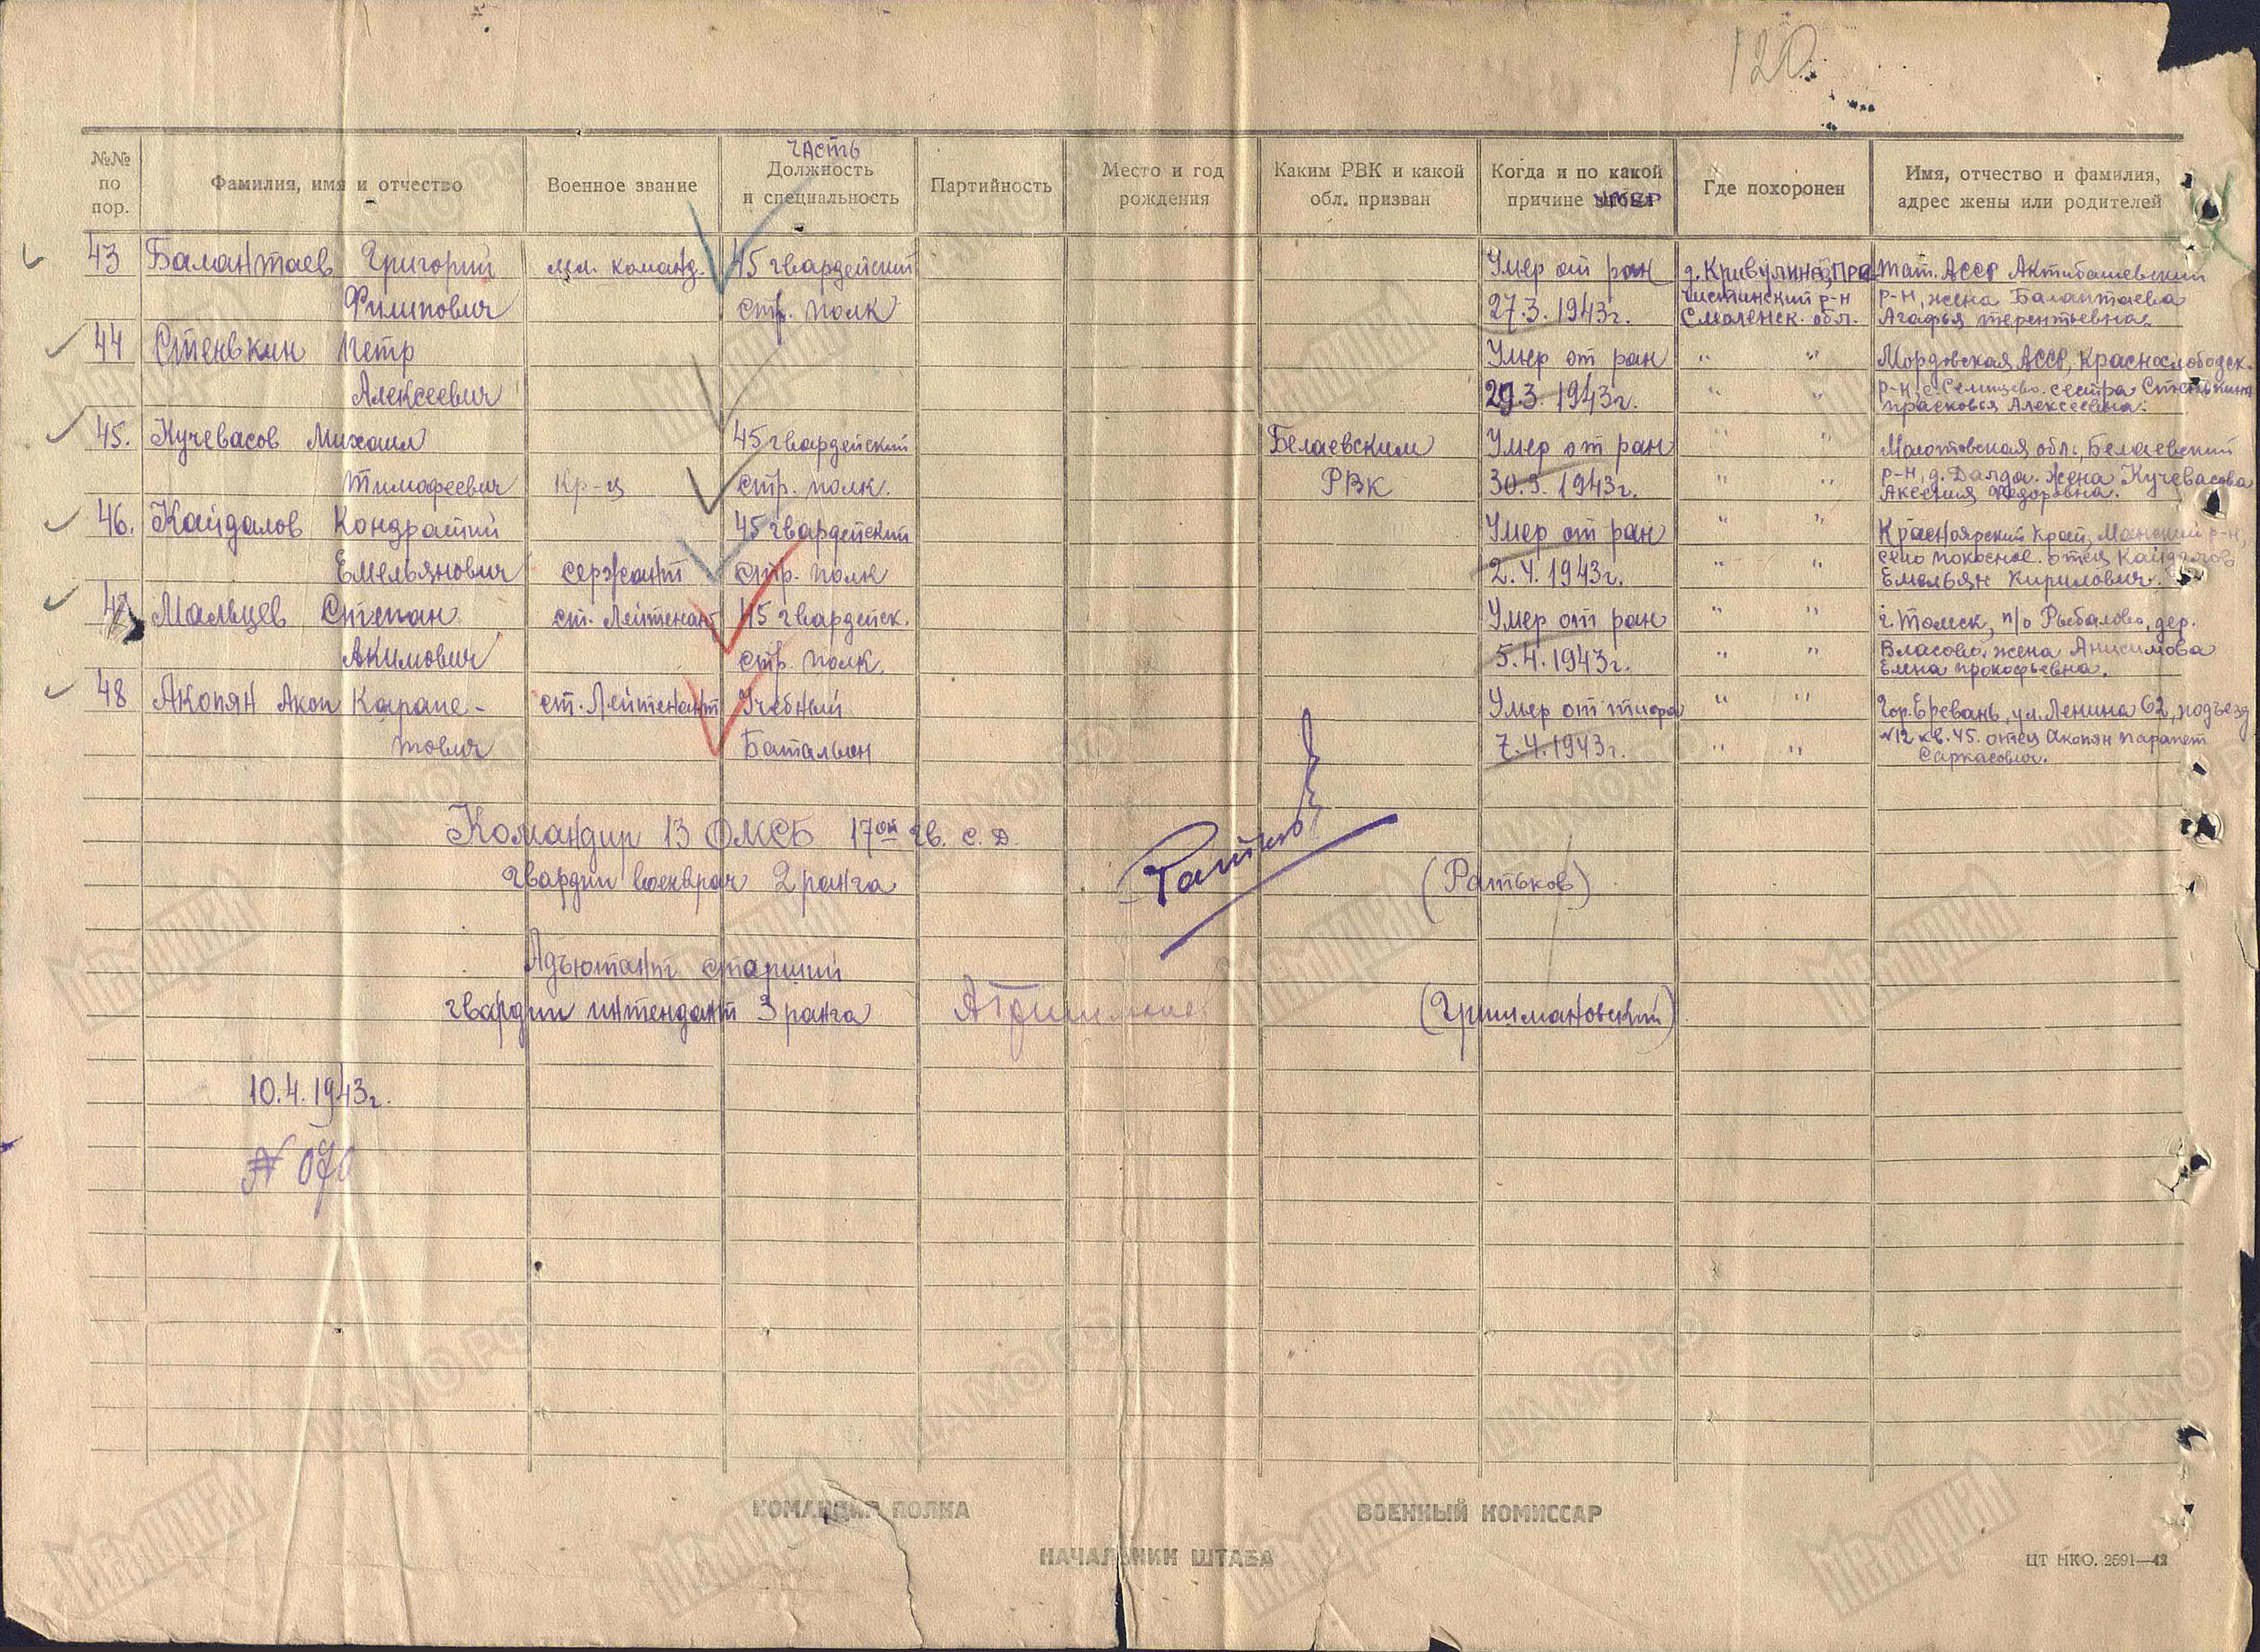 120
№№ по пор.
Фамилия, имя и отчество
Военное звание
часть
Должность и специальность
Партийность
Место и год рождения
Каким РВК и какой обл. призван
Когда и по какой причине умер
Где похоронен
Имя, отчество и фамилия, адрес жены или родителей
43 Балантаев Григорий мл. команд. 45 гвардейский Умер от ран д. Кривулино, Пре- Тат. АССР Актибашевский
Филипович стр. полк 27.3.1943г. чистинский р-н р-н, жена Балантаева
Смоленск. обл. Агафья терентьевна.
44 Стенвкин Петр Умер от ран " " Мордовская АССР, Краснослободск.
Алексеевич 29.3.1943г. " " р-н, с. Селищево. сестра
Прасковья Алексеевна.
45. Кучевасов Михаил 45 гвардейский Белаевским Умер от ран " " Молотовская обл., Белаевский
Тимофеевич Кр-ц стр. полк. РВК 30.3.1943г. " " р-н, д. Далда. жена Кучевасова
Аксения Федоровна.
46. Кайдалов Кондратий 45 гвардейский Умер от ран " " Красноярский край, Манский р-н,
Емельянович сержант стр. полк 2.4.1943г. " " село Покосное. отец Кайдалов
Емельян Кирилович.
47 Мальцев Степан ст. Лейтенант 45 гвардейск. Умер от ран " " г. Томск, п/о Рыбалово, дер.
Акимович стр. полк. 5.4.1943г. " " Власово. жена Анисимова
Елена прокофьевна.
48 Акопян Акоп Карапе- ст. Лейтенант Учебный Умер от тифа " " Гор. Еревань, ул. Ленина 62, подъезд
тович Батальон 7.4.1943г. " " №12 кв. 45. отец Акопян парапет
Саркасович.
Командир 13 ОМСБ 17ой гв. с. д.
гвардии военврач 2 ранга (Ратьков)
Адъютант старший
гвардии интендант 3 ранга (Гришмановский)
10.4.1943г.
КОМАНДИР ПОЛКА
ВОЕННЫЙ КОМИССАР
НАЧАЛЬНИК ШТАБА
ЦТ НКО. 2591—42